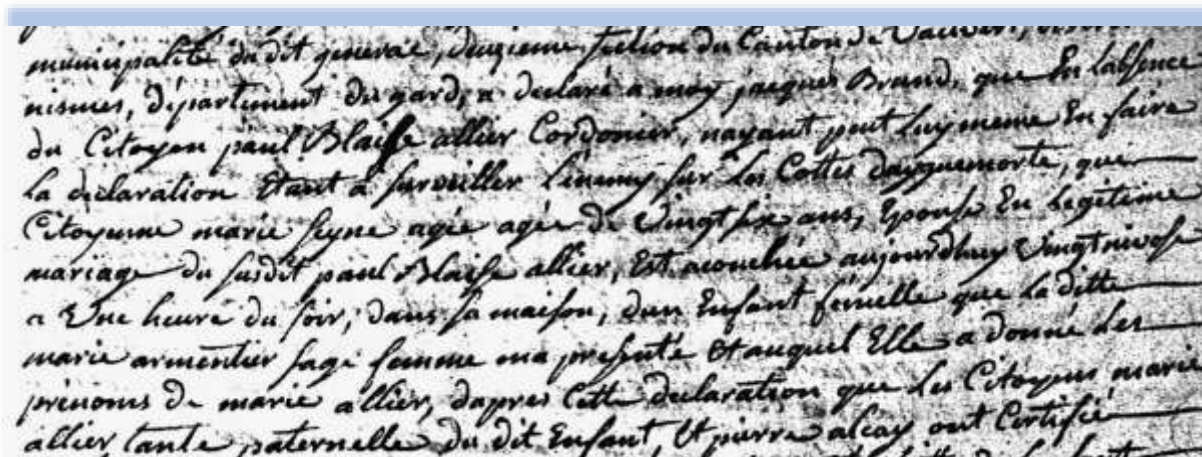 municipalité du dit generac, deuzieme section du Canton de Vauvert,
nismes, département du gard, a declaré a moy jacques Brund, que En labsence
du Citoyen paul Blaisse allier Cordonier, nayant peut luy meme En faire
la déclaration Etant a surveiller l'enemy sur les Cottes dayguemorte, que
Citoyenne marie seyne agée agée de vingt six ans, Epouse En legitime
mariage du susdit paul Blaise allier, Est acouchée aujourdhuy vingt nivose
a Une heure du soir, dans sa maison, dun Enfant femelle que la ditte
marie armentier sage femme ma presenté Et auquel Elle a donné les
prénoms de marie allier, dapres Cette declaration que les Citoyens marie
allier tante paternelle du dit Enfant, Et pierre alcay ont Certifié